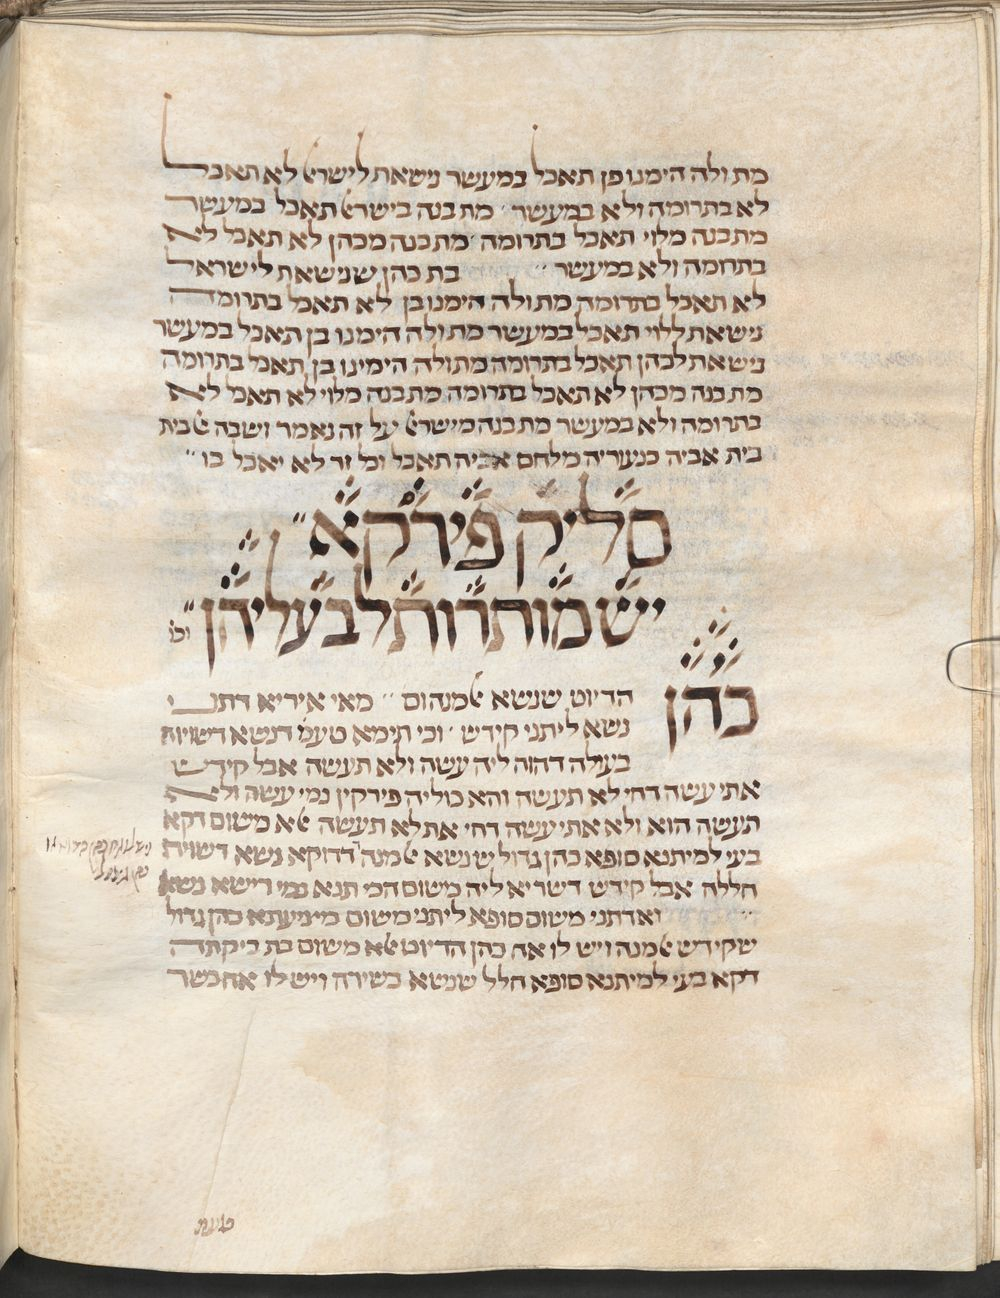 מתולה הימנו פן תאכל במעשר נישאת לישראל לא תאכל
לא בתרומה ולא במעשר מת בנה בישראל תאכל במעשר
מת בנה מלוי תאכל בתרומה מת בנה מכהן לא תאכל לא
בתרומה ולא במעשר בת כהן שנישאת לישראל
לא תאכל בתרומה מת ולה הימנו בן לא תאכל בתרומה
נישאת ללוי תאכל במעשר מת ולה הימנו בן תאכל במעשר
נישאת לכהן תאכל בתרומה מת ולה הימינו בן תאכל בתרומה
מת בנה מכהן לא תאכל בתרומה מת בנה מלוי לא תאכל לא
בתרומה ולא במעשר מת בנה מישראל על זה נאמר ושבה אל בית
בית אביה כנעוריה מלחם אביה תאכל וכל זר לא יאכל בו
סליק פירקא
יש מותרות לבעליהן וכו
כהן
הדיוט שנשא אלמנה וכו מאי איריא דתני
נשא ליתני קידש וכי תימא טעמ דנשא דשויה
בעולה דהוה ליה עשה ולא תעשה אבל קידש
אתי עשה דחי לא תעשה והא כוליה פירקין נמי עשה ולא
תעשה הוא ולא אתי עשה דחי את לא תעשה אלא משום דקא
בעי למיתנא סופא כהן גדול שנשא אלמנה דדוקא נשא דשויה
חללה אבל קידש דשריא ליה משום הכי תנא נמי רישא נשא
ואדתני משום סופא ליתני משום מיציעתא כהן גדול
שקידש אלמנה ויש לו אח כהן הדיוט אלא משום
דקא בעי למיתנא סופא חלל שנשא כשירה ויש לו אח כשר